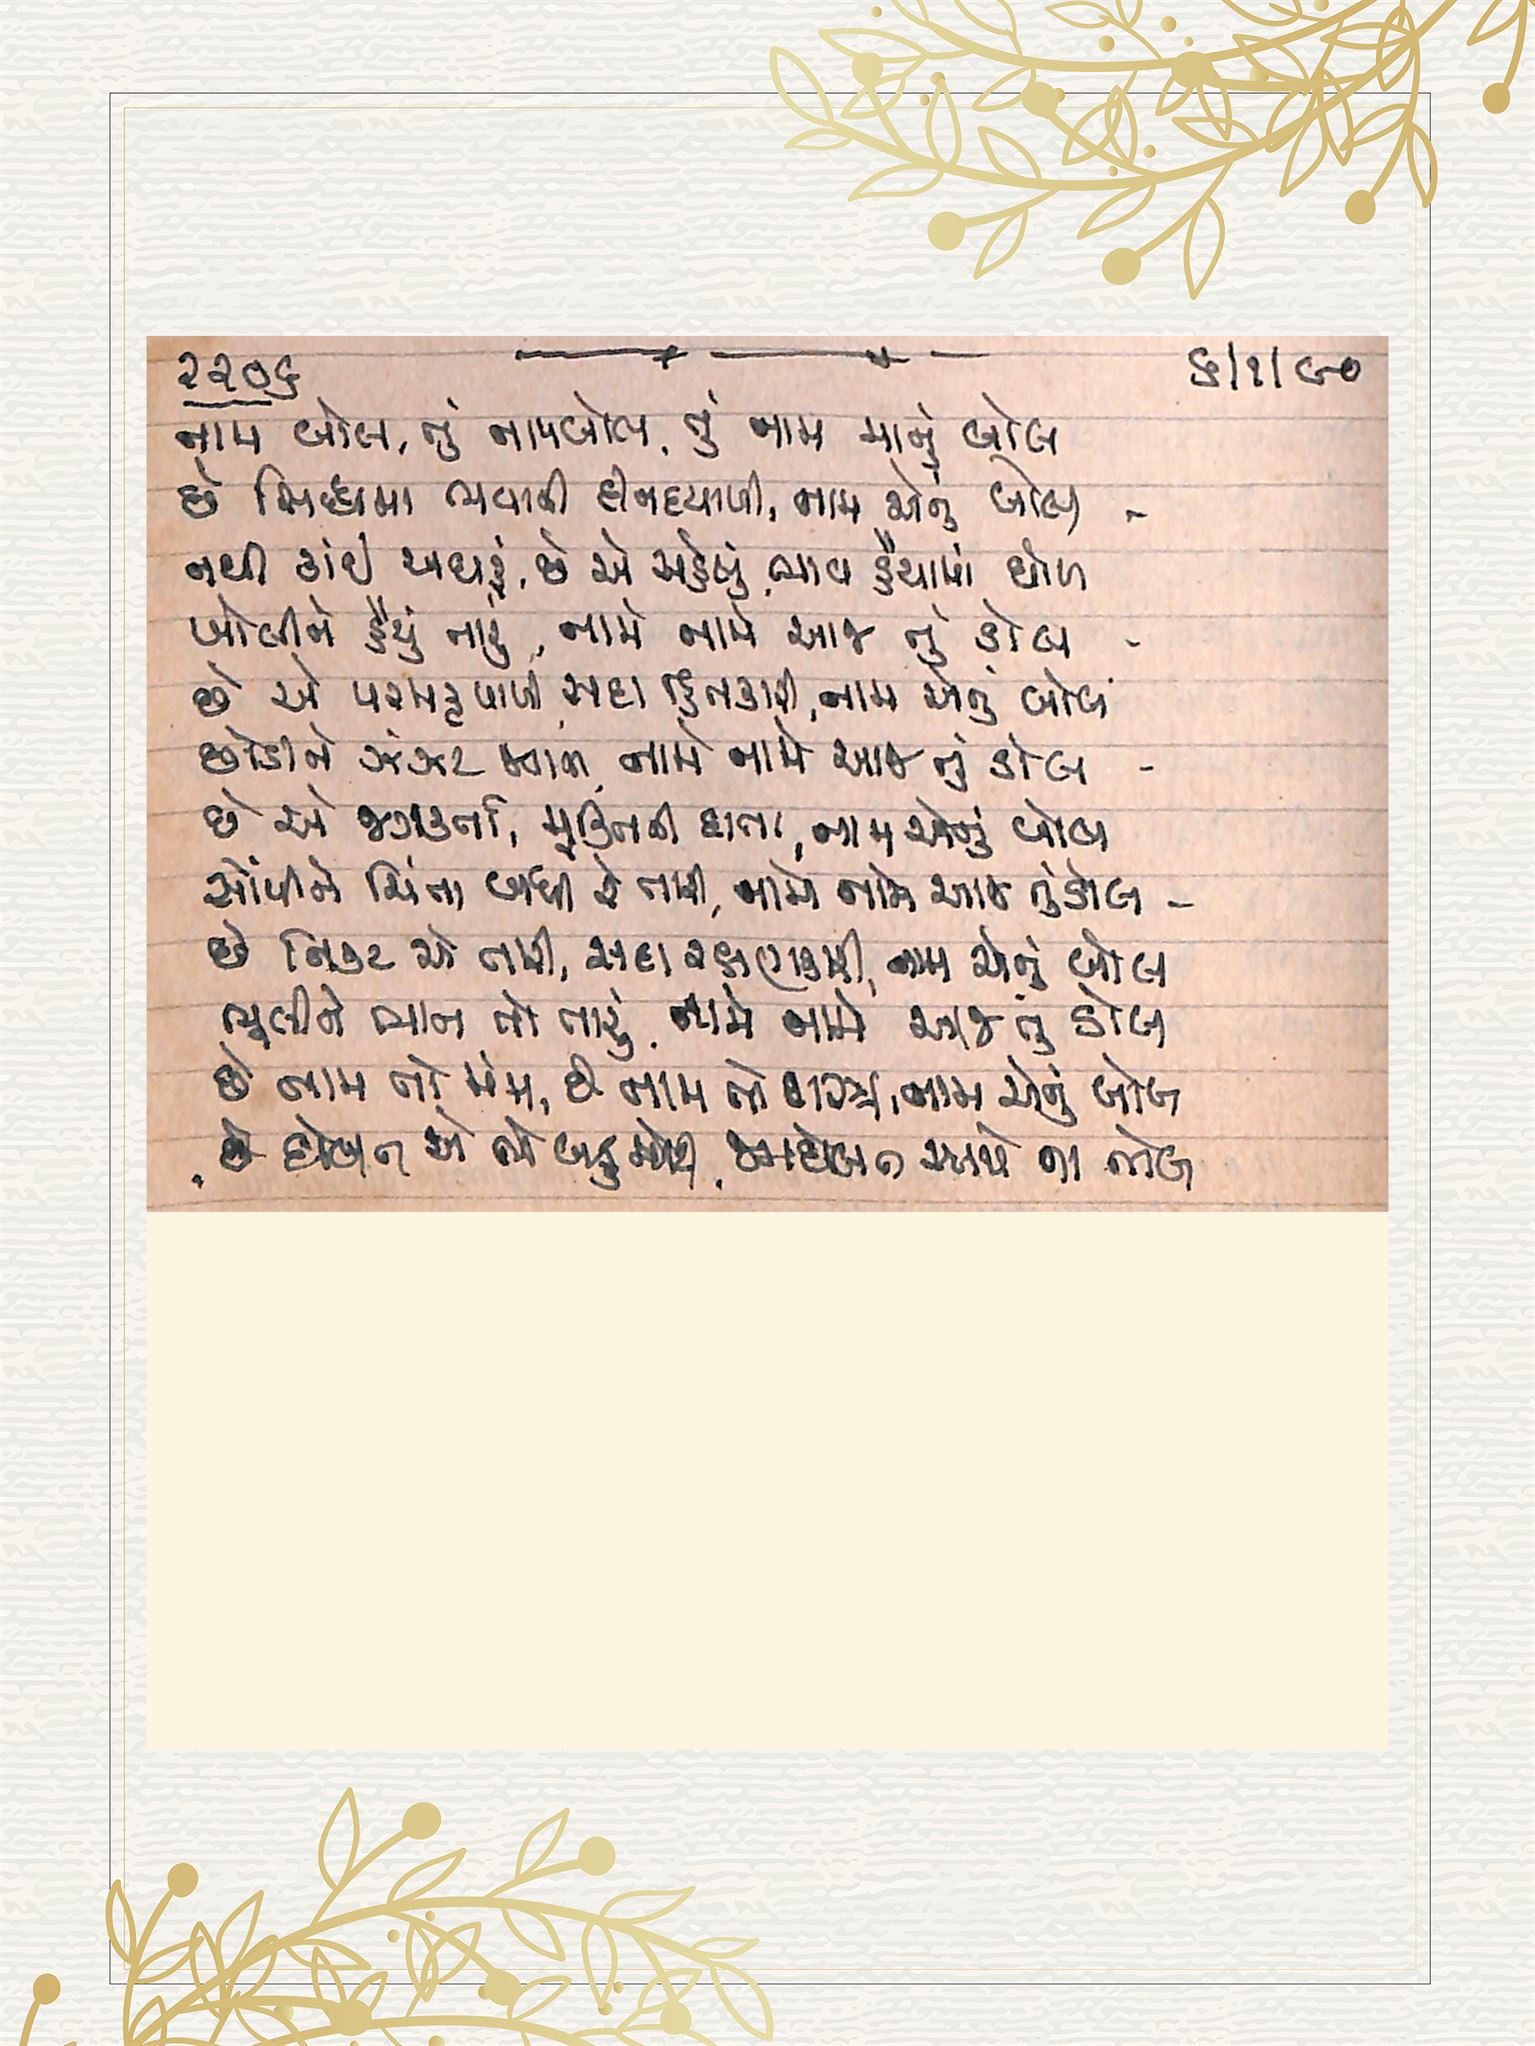 ૨૨૦૬ ૬/૧/૯૦
નામ બોલ, તું નામ બોલ, તું નામ માનું બોલ
છે સિધ્ધમા ભવાની દીનદયાળી, નામ એનું બોલ -
નથી કાંઈ અઘરૂં, છે એ સહેલું, ભાવ હૈયામાં ઘોળ
ખોલીને હૈયું તારું, નામે નામે આજ તું ડોલ -
છે એ પરમકૃપાળી, સદા હિતકારી, નામ એનું બોલ
છોડીને ઝંઝટ બધી, નામે નામે આજ તું ડોલ -
છે એ જગકર્તા, મુક્તિની દાતા, નામ એનું બોલ
સોંપીને ચિંતા બધી રે તારી, નામે નામે આજ તું ડોલ -
છે નિકટ એ તારી, સદા રક્ષણકારી, નામ એનું બોલ
ભૂલીને ભાન તો તારું, નામે નામે આજ તું ડોલ
છે નામ તો મંત્ર, છે નામ તો શાસ્ત્ર, નામ એનું બોલ
છે દોલત એ તો બહુ મોટી, જગદોલત આપે ના તોલ